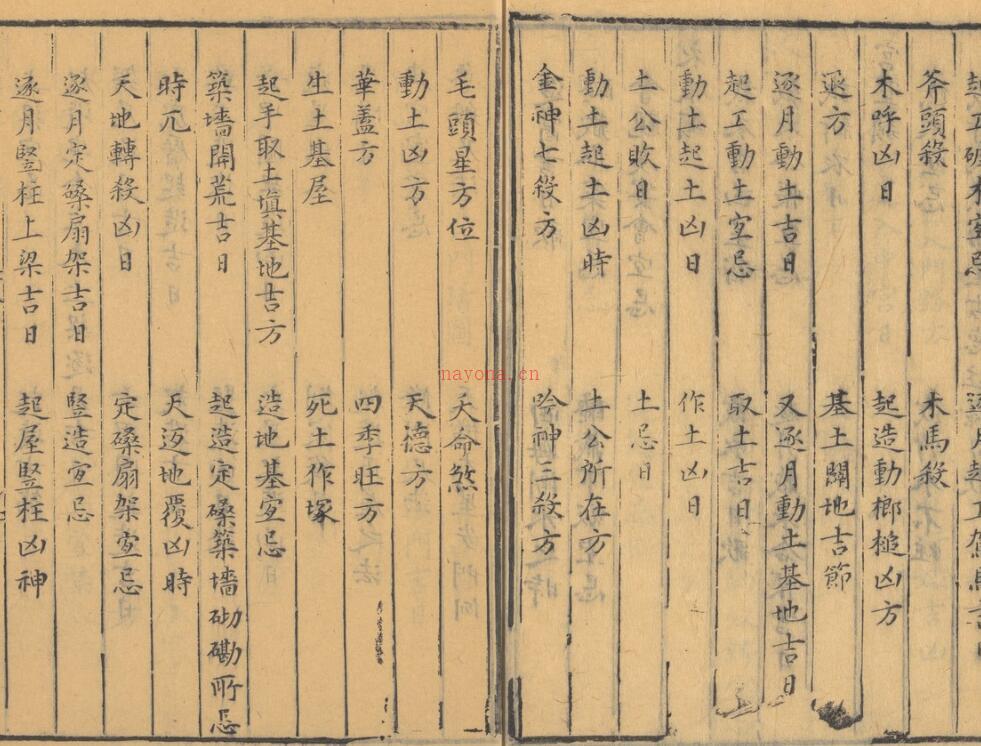 斧頭殺
木馬殺
木呼凶日
起造動榔槌凶方
退方
基土闢地吉節
逐月動土吉日
又逐月動土基地吉日
起工動土宜忌
取土吉日
動土起土凶日
作土凶日
土公敗日
土忌日
動土起土凶時
土公所在方
金神七殺方
吟神三殺方
毛頭星方位
天命煞
動土凶方
天德方
華蓋方
四季旺方
生土基屋
死土作塚
起手取土填基地吉方
造地基宜忌
築墻開荒吉日
起造定磉築墻砌磡所忌
時兀
天迈地覆凶時
天地轉殺凶日
定磉扇架宜忌
逐月定磉扇架吉日
豎造宜忌
逐月豎柱上梁吉日
起屋豎柱凶神
nayona.cn